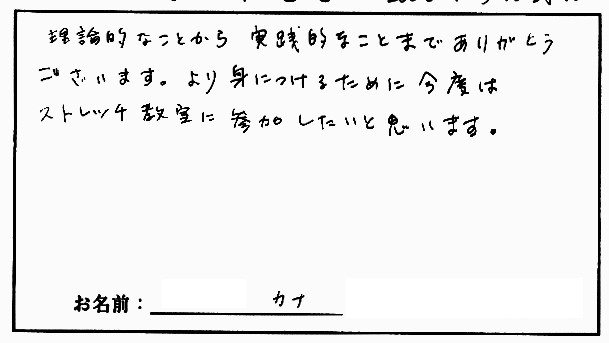 理論的なことから 実践的なことまでありがとう
ございます。より身につけるために今度は
ストレッチ教室に参加したいと思います。
お名前： カナ